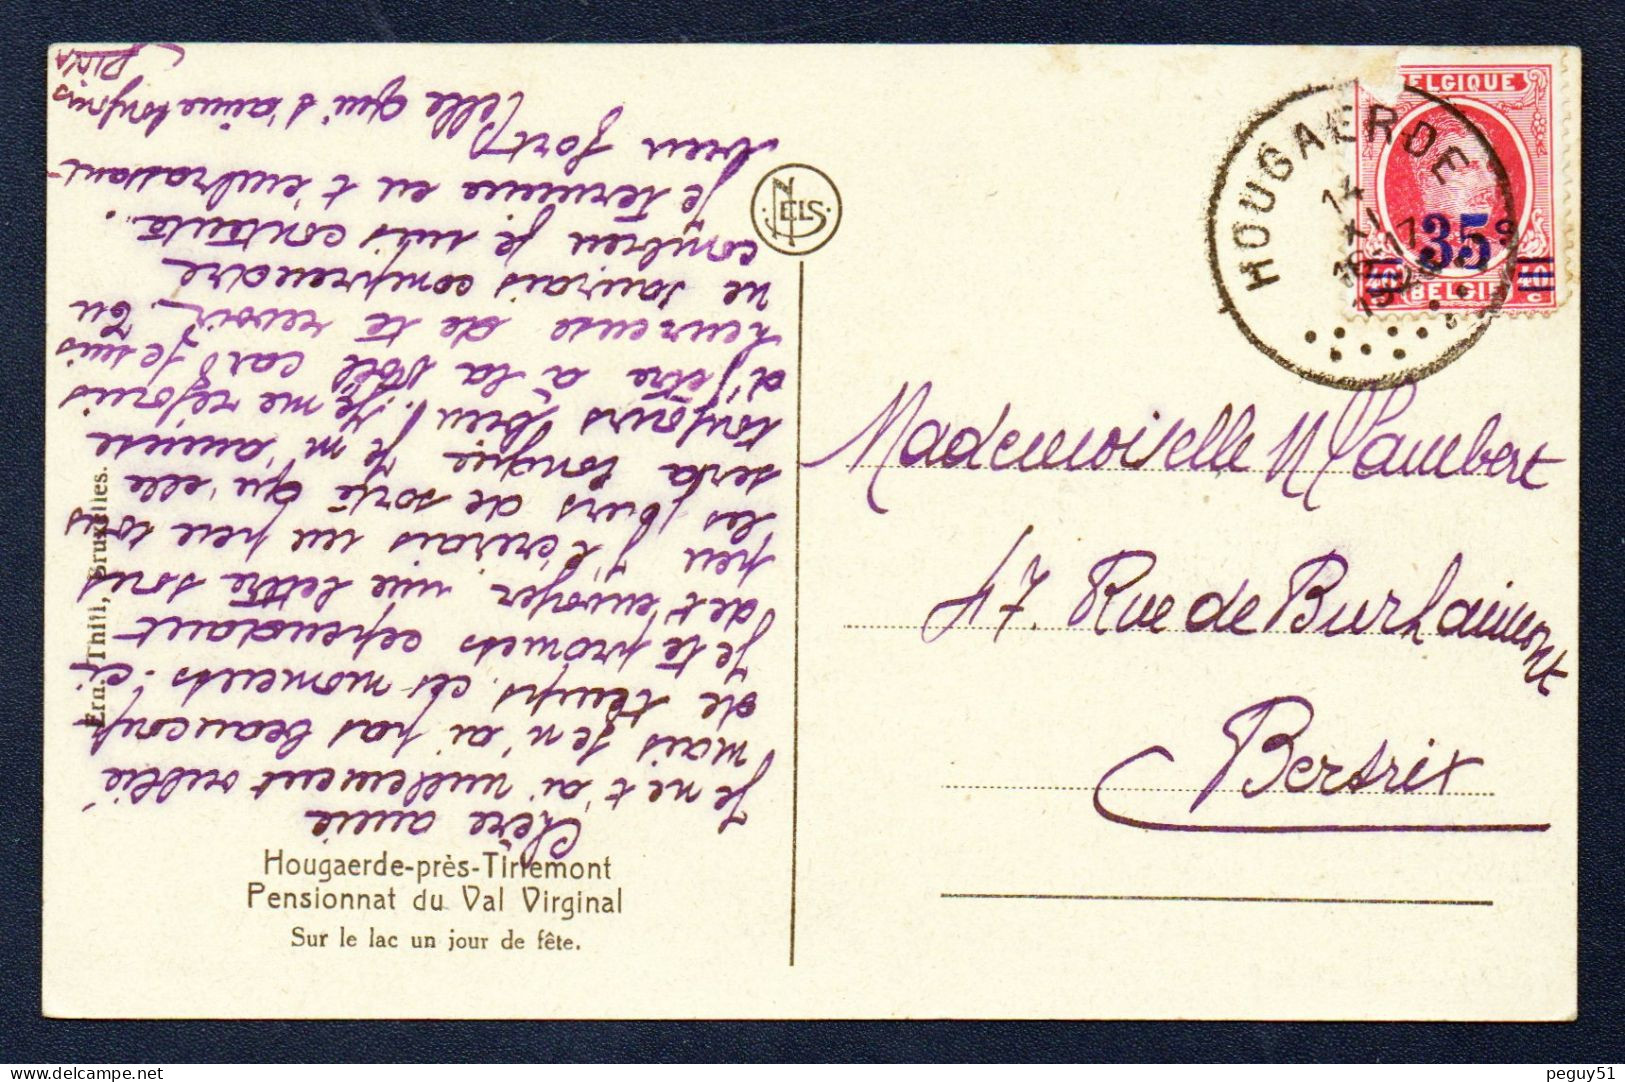 Chère amie
Je ne t'ai nullement oublié
mais je n'ai pas beaucoup
de temps ces moments-ci.
Je te promets cependant
de t'envoyer une lettre sous
peu. J'écrirais un peu tous
les jours de sorte qu'elle
sera longue. Je m'amuse
toujours bien! Je me réjouis
d'être à la Noël car je suis
heureuse de te revoir. Tu
ne saurais comprendre
combien je suis contente.
Je termine en t'embrassant
bien fort
Celle qui t'aime toujours
DINA
Hougaerde-près-Tirlemont
Pensionnat du Val Virginal
Sur le lac un jour de fête.
Ern. Thill, Bruxelles.
NELS
BELGIQUE
35
40 40
BELGIE
HOUGAERDE
14
XI
Mademoiselle M Lambert
47 Rue de Burhaimont
Bertrix
peguy51